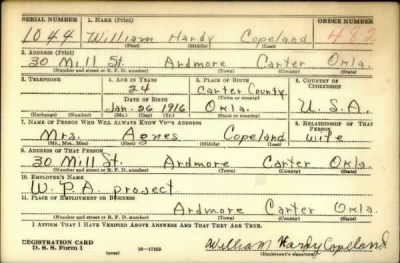 SERIAL NUMBER 1. NAME (Print) ORDER NUMBER
1044 William Hardy Copeland 482
(First) (Middle) (Last)
2. ADDRESS (Print)
30 Mill St. Ardmore Carter Okla.
(Number and street or R. F. D. number) (Town) (County) (State)
3. TELEPHONE 4. AGE IN YEARS 5. PLACE OF BIRTH 6. COUNTRY OF CITIZENSHIP
24 Carter County
DATE OF BIRTH (Town or county)
Jan. 26 1916 Okla. U.S.A.
(Exchange) (Number) (Mo.) (Day) (Yr.) (State or country)
7. NAME OF PERSON WHO WILL ALWAYS KNOW YOUR ADDRESS 8. RELATIONSHIP OF THAT PERSON
Mrs. Agnes Copeland wife
(Mr., Mrs., Miss) (First) (Middle) (Last)
9. ADDRESS OF THAT PERSON
30 Mill St. Ardmore Carter Okla.
(Number and street or R. F. D. number) (Town) (County) (State)
10. EMPLOYER'S NAME
W.P.A. project
11. PLACE OF EMPLOYMENT OR BUSINESS
Ardmore Carter Okla.
(Number and street or R. F. D. number) (Town) (County) (State)
I AFFIRM THAT I HAVE VERIFIED ABOVE ANSWERS AND THAT THEY ARE TRUE.
REGISTRATION CARD William Hardy Copeland
D. S. S. Form 1 (over) 16—17105 (Registrant's signature)